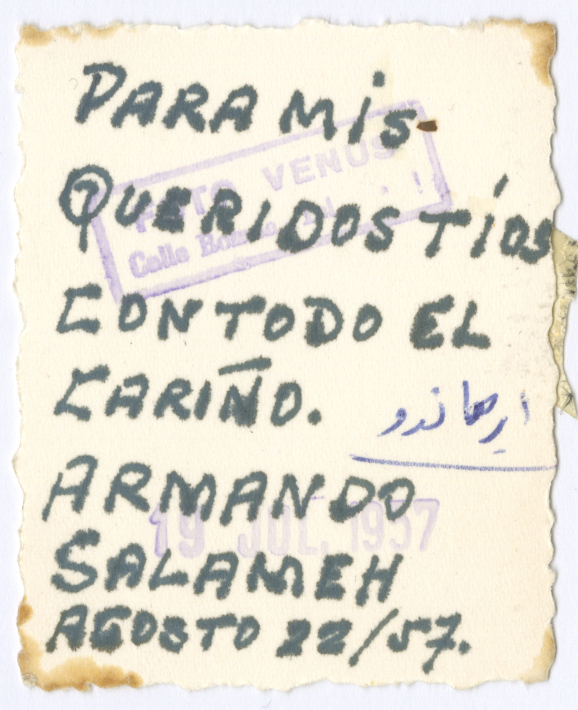 PARA MIS
QUERIDOS TÍOS
CON TODO EL
CARIÑO.
ARMANDO
SALAMEH
AGOSTO 22/57.
FOTO VENUS
Calle
19 JUL. 1957